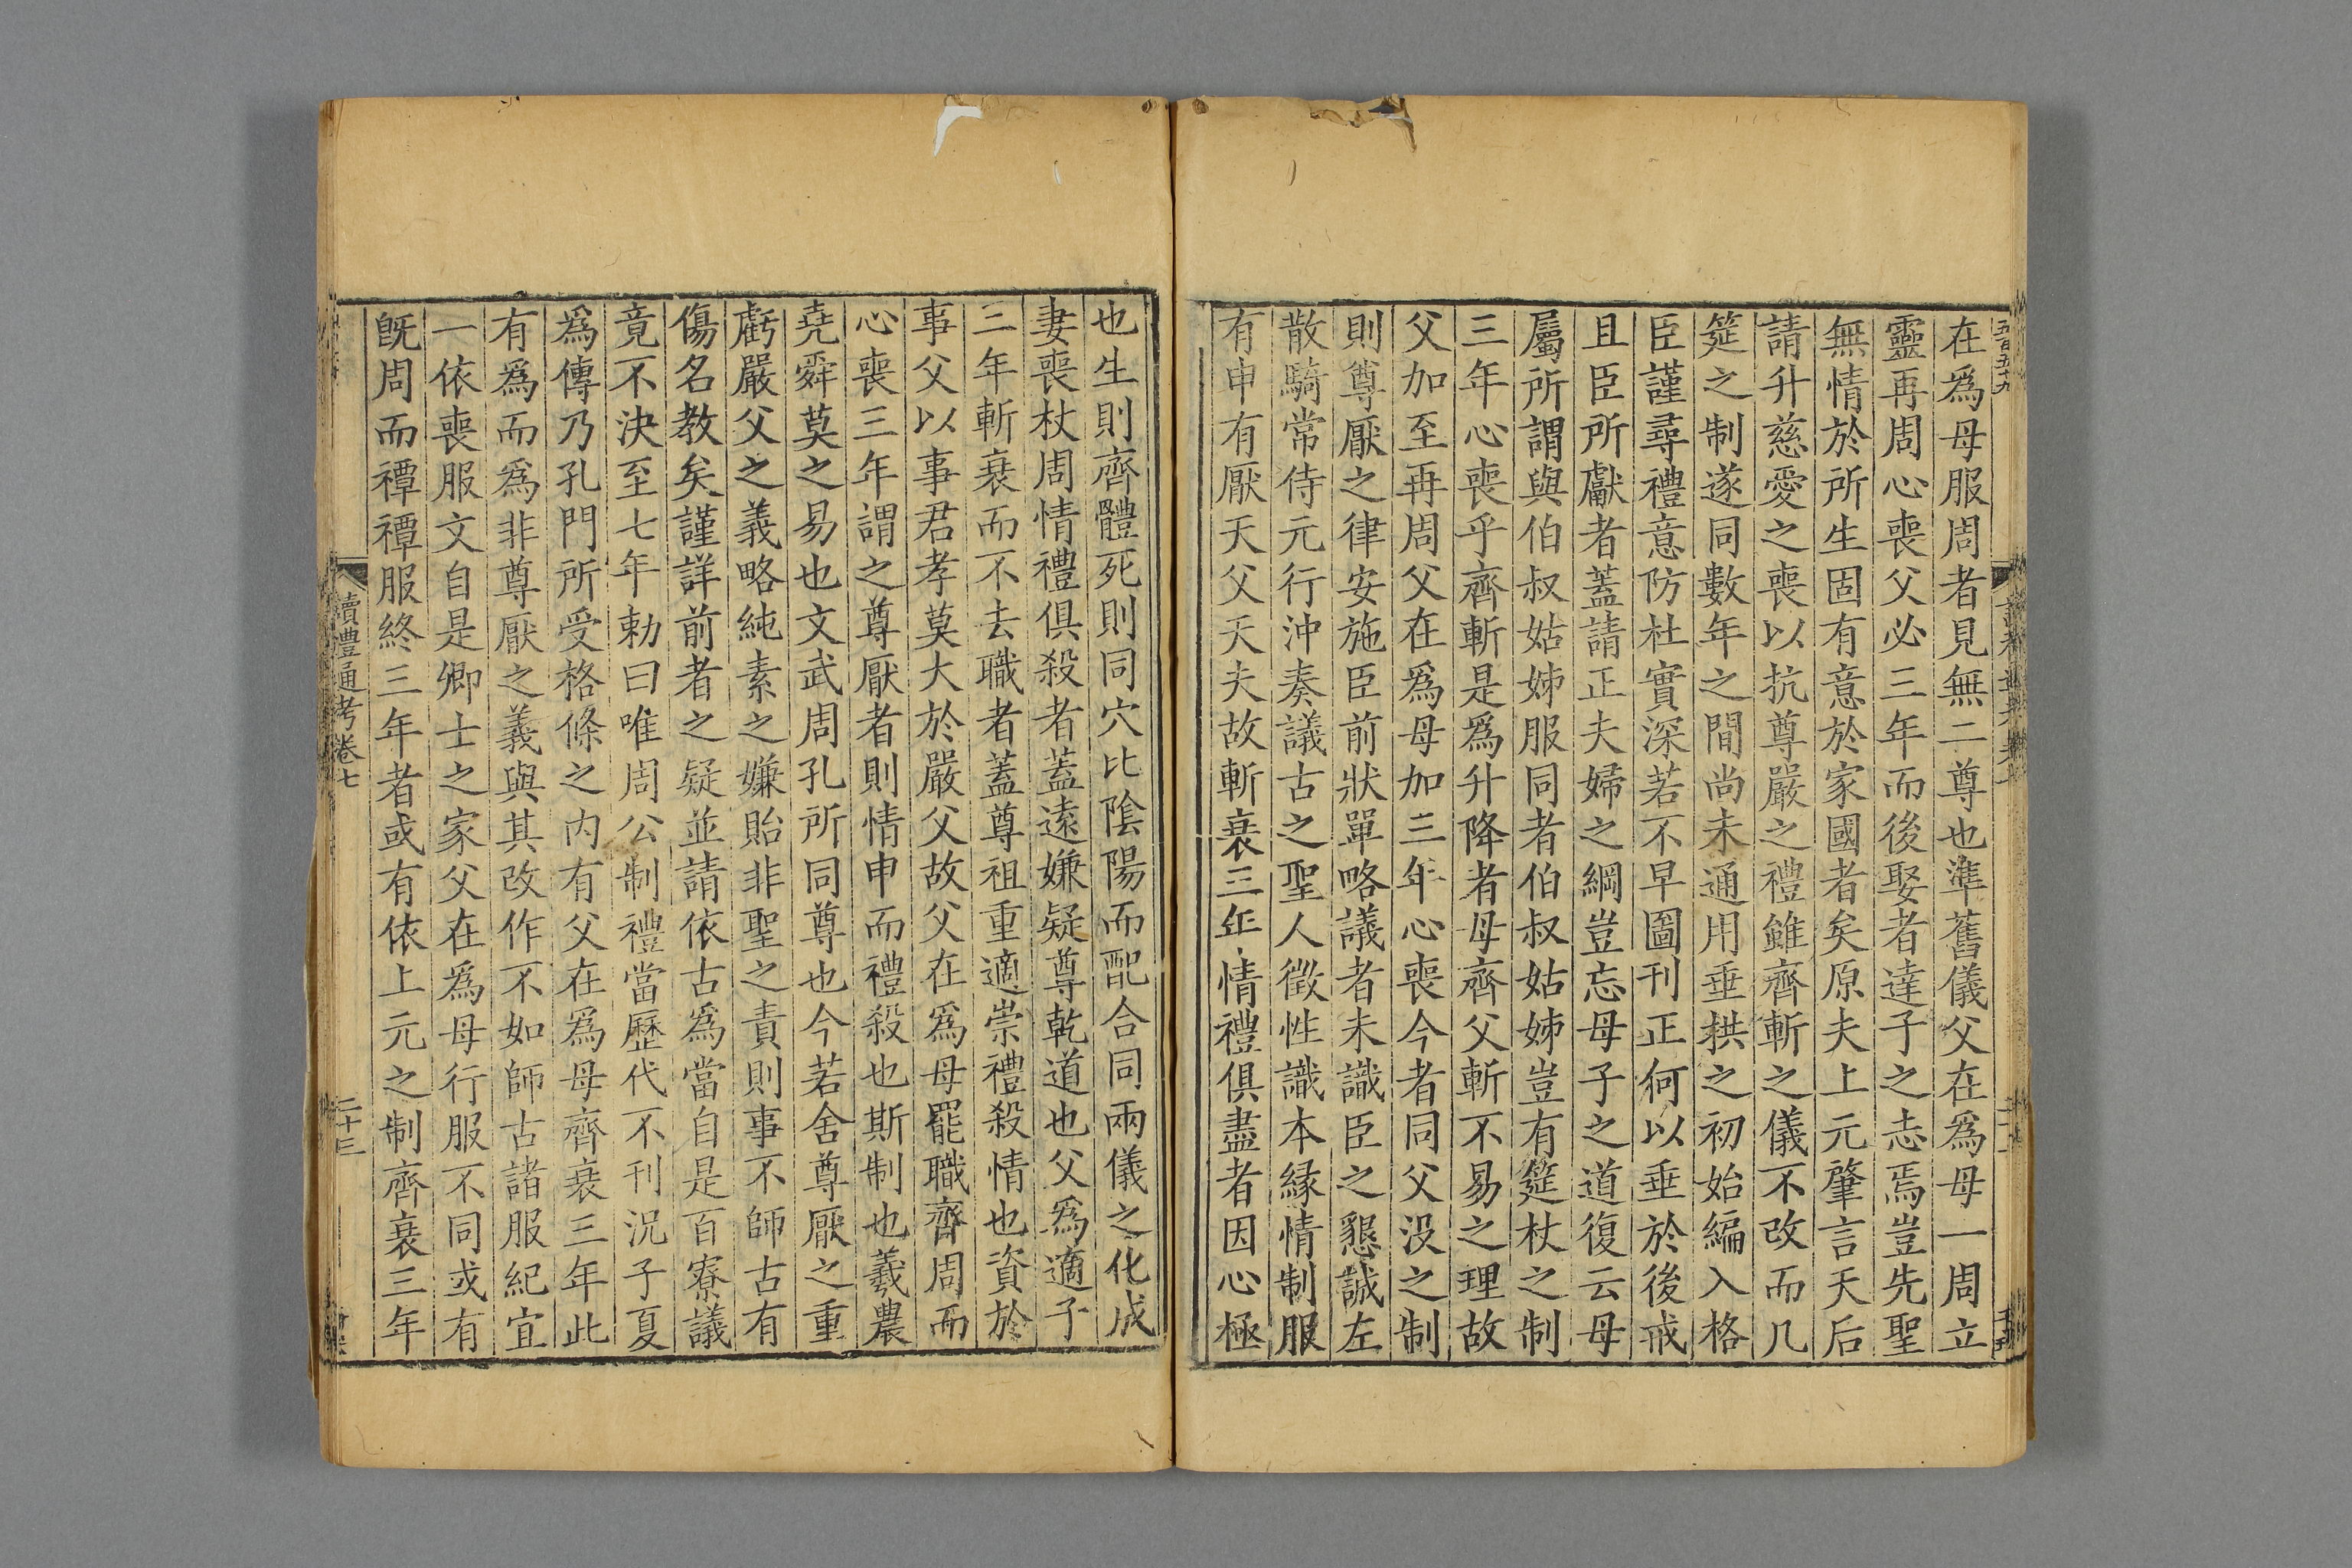 五百五十九
在爲母服周者見無二尊也準舊儀父在爲母一周立
靈再周心喪父必三年而後娶者達子之志焉豈先聖
無情於所生固有意於家國者矣原夫上元肇言天后
請升慈愛之喪以抗尊嚴之禮雖齊斬之儀不改而几
筵之制遂同數年之間尚未通用垂拱之初始編入格
臣謹尋禮意防杜實深若不早圖刊正何以垂於後戒
且臣所獻者蓋請正夫婦之綱豈忘母子之道復云母
屬所謂與伯叔姑姊服同者伯叔姑姊豈有筵杖之制
三年心喪乎齊斬是爲升降者母齊父斬不易之理故
父加至再周父在爲母加三年心喪今者同父没之制
則尊厭之律安施臣前狀單略議者未識臣之懇誠左
散騎常侍元行沖奏議古之聖人徵性識本緣情制服
有申有厭天父天夫故斬衰三年情禮俱盡者因心極
也生則齊體死則同穴比陰陽而配合同兩儀之化成
妻喪杖周情禮俱殺者蓋遠嫌疑尊乾道也父爲適子
三年斬衰而不去職者蓋尊祖重適崇禮殺情也資於
事父以事君孝莫大於嚴父故父在爲母罷職齊周而
心喪三年謂之尊厭者則情申而禮殺也斯制也羲農
堯舜莫之易也文武周孔所同尊也今若舍尊厭之重
虧嚴父之義略純素之嫌貽非聖之責則事不師古有
傷名教矣謹詳前者之疑並請依古爲當自是百寮議
竟不決至七年勅曰唯周公制禮當歷代不刊況子夏
爲傳乃孔門所受格條之内有父在爲母齊衰三年此
有爲而爲非尊厭之義與其改作不如師古諸服紀宜
一依喪服文自是卿士之家父在爲母行服不同或有
既周而禫禫服終三年者或有依上元之制齊衰三年
讀禮通考卷七
二十三